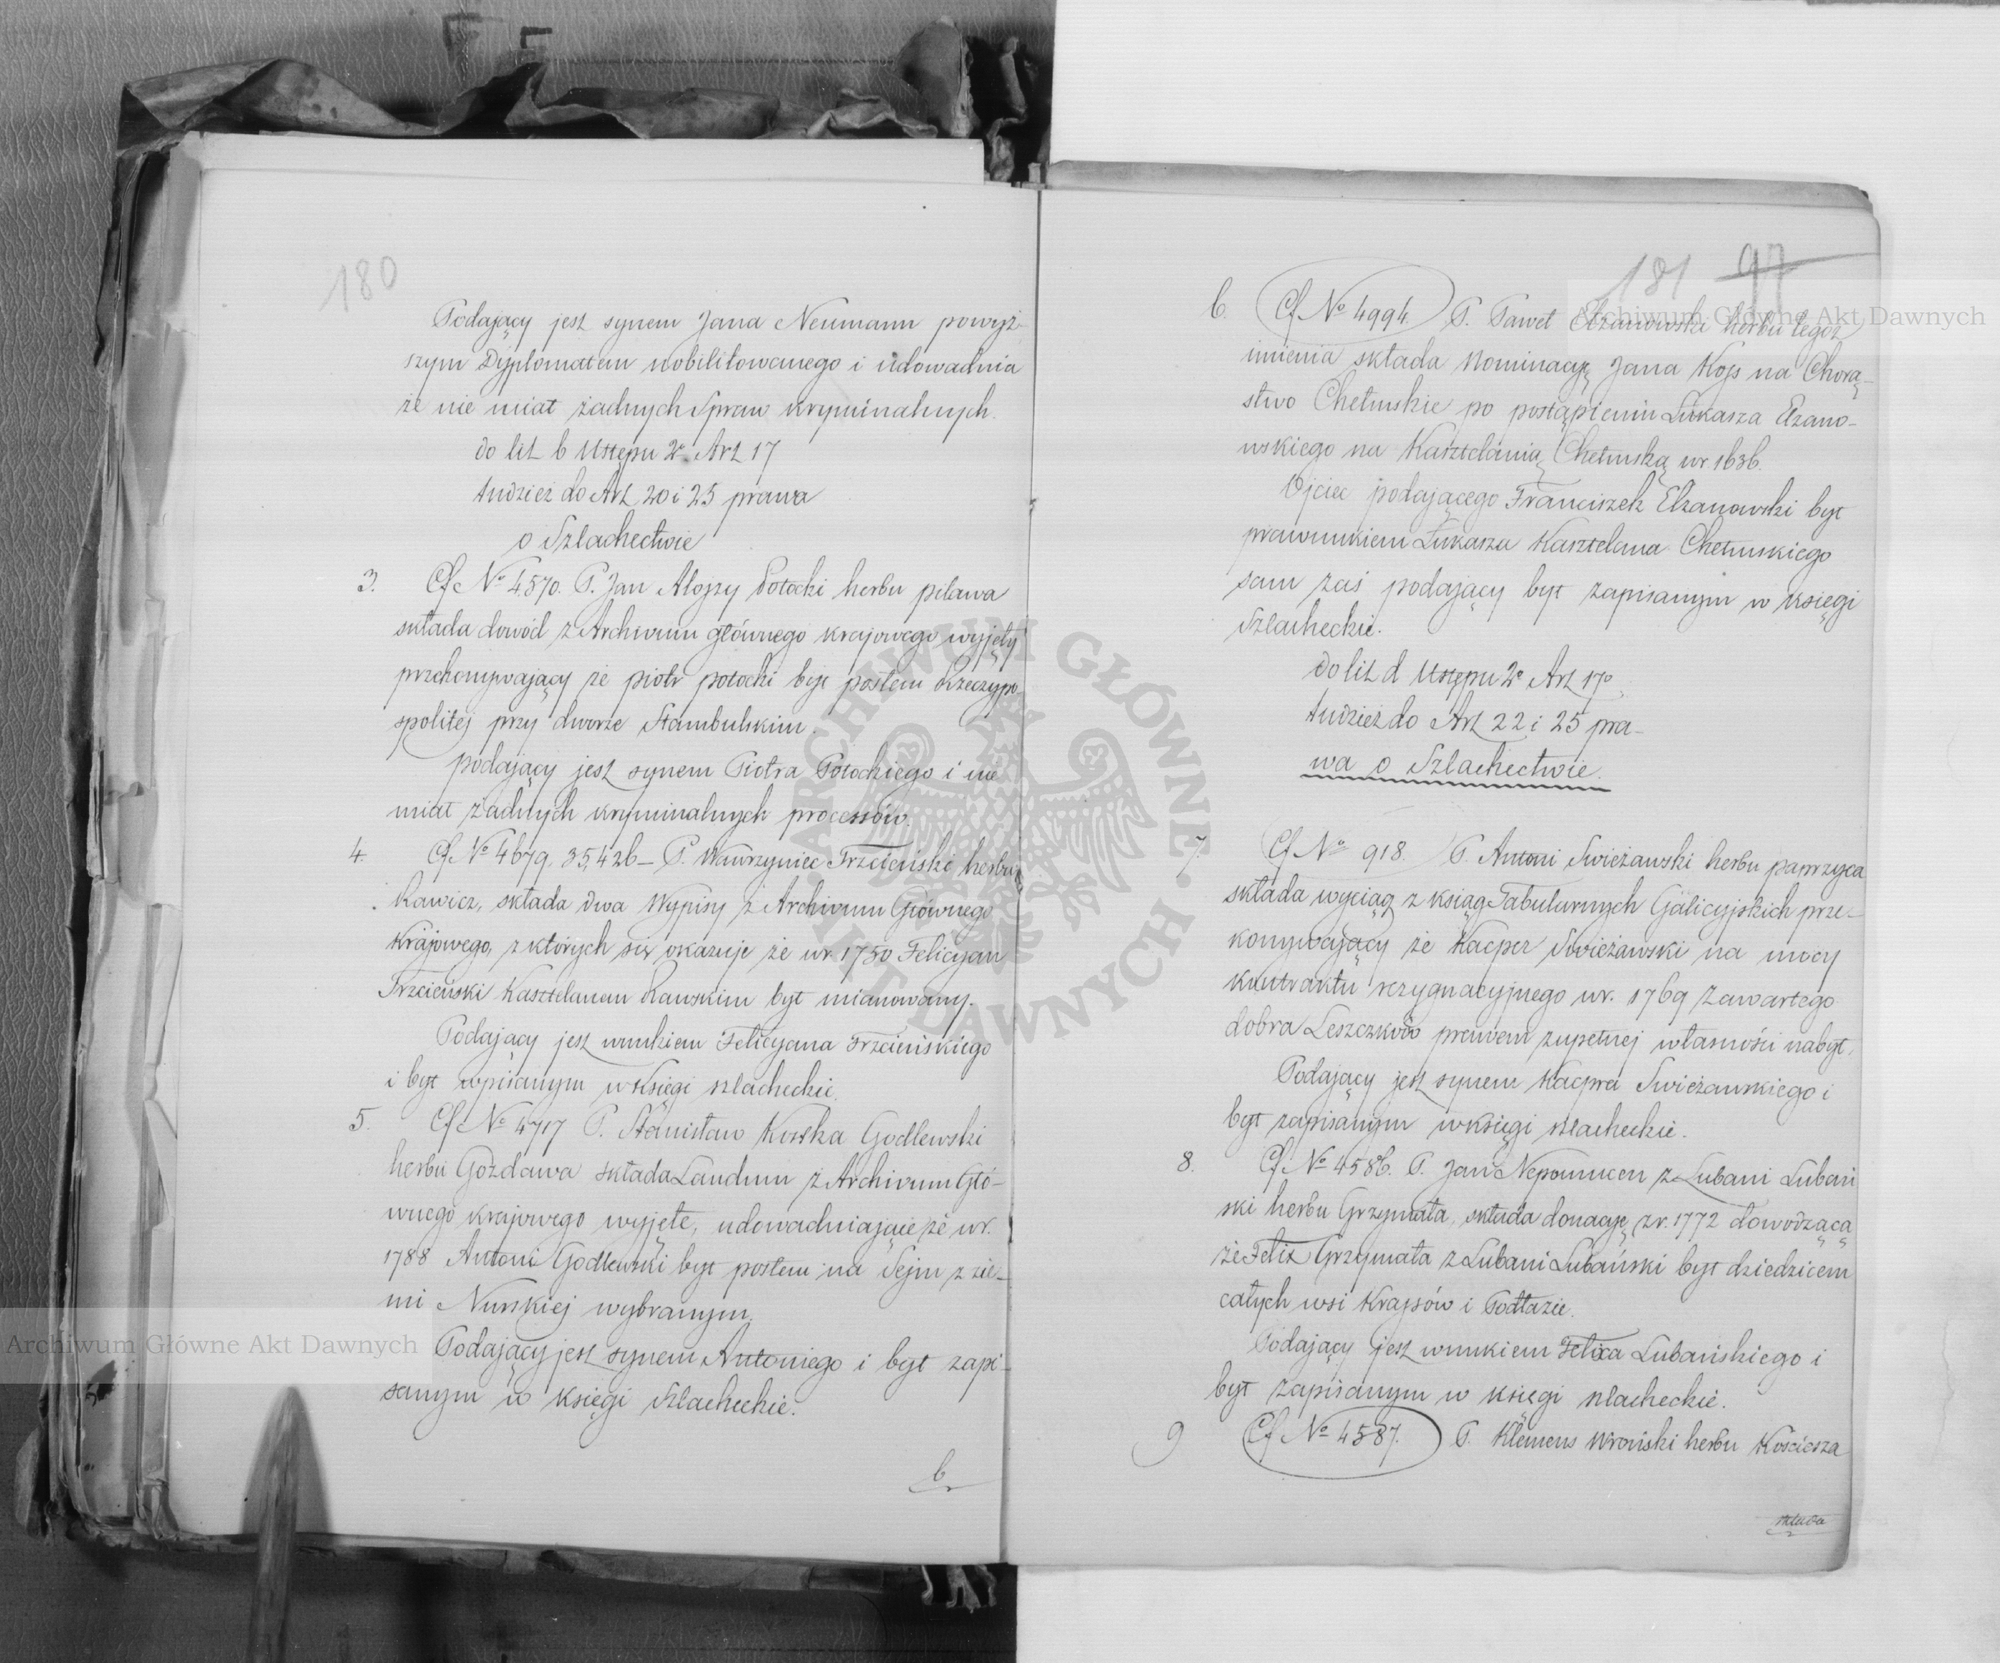 180
Podający jest synem Jana Neumann powyż-
szym Dyplomatem nobilitowanego i udowadnia
że nie miał żadnych Spraw kryminalnych.
do lit b Ustępu 2º Art 17
tudzież do Art 20 i 25 prawa
o Szlachectwie
3. Cf Nº 4570. P. Jan Alojzy Potocki herbu pilawa
składa dowód z Archivum głównego krajowego wyjęty
przekonywający że piotr potocki był posłem Rzeczypo
spolitej przy dworze Stambulskim.
podający jest synem Piotra Potockiego i nie
miał żadnych kryminalnych processów.
4. Cf Nº 4679, 35,426 – P. Wawrzyniec Trzcieński herbu
Rawicz, składa dwa Wypisy z Archivum Głównego
Krajowego, z których się okazuje że w r. 1750 Felicyan
Trzcieński Kasztelanem Rawskim był mianowany.
Podający jest wnukiem Felicyana Trzcieńskiego
i był wpisanym w Księgi szlacheckie.
5. Cf Nº 4717 P. Stanisław Kostka Godlewski
herbu Gozdawa składa Laudum z Archivum Głó-
wnego krajowego wyjęte, udowadniające że w r.
1788 Antoni Godlewski był posłem na Sejm z zie-
mi Nurskiej wybranym.
Podający jest synem Antoniego i był zapi-
sanym w księgi Szlacheckie.
6
181 97
6. Cf Nº 4994. P. Paweł Elzanowski herbu tegoż
imienia składa Nominacyę Jana Kojs na Chorą-
stwo Chełmskie po postąpieniu Łukasza Elzano-
wskiego na Kasztelanią Chełmską w r. 1636.
Ojciec podającego Franciszek Elzanowski był
prawnukiem Łukasza Kasztelana Chełmskiego
sam zaś podający był zapisanym w księgi
Szlacheckie.
do lit d Ustępu 2º Art 17º
tudzież do Art 22 i 25 pra-
wa o Szlachectwie.
7. Cf Nº 918. P. Antoni Swieżawski herbu paprzyca
składa wyciąg z ksiąg Tabularnych Galicyjskich prze-
konywający że Kacper Swieżawski na mocy
kontraktu rezygnacyjnego w r. 1769 zawartego
dobra Leszczków prawem zupełnej własności nabył.
Podający jest synem Kacpra Swieżawskiego i
był zapisanym w księgi szlacheckie.
8. Cf Nº 4586. P. Jan Nepomucen z Lubani Lubań
ski herbu Grzymała, składa donacyę z r. 1772 dowodzącą
że Felix Grzymała z Lubani Lubański był dziedzicem
całych wsi Krajsów i Podłazie.
Podający jest wnukiem Felixa Lubańskiego i
był zapisanym w księgi szlacheckie.
9 Cf Nº 4587. P. Klemens Wroński herbu Kościesza
składa
Archiwum Główne Akt Dawnych
Archiwum Główne Akt Dawnych
ARCHIWUM GŁÓWNE AKT DAWNYCH